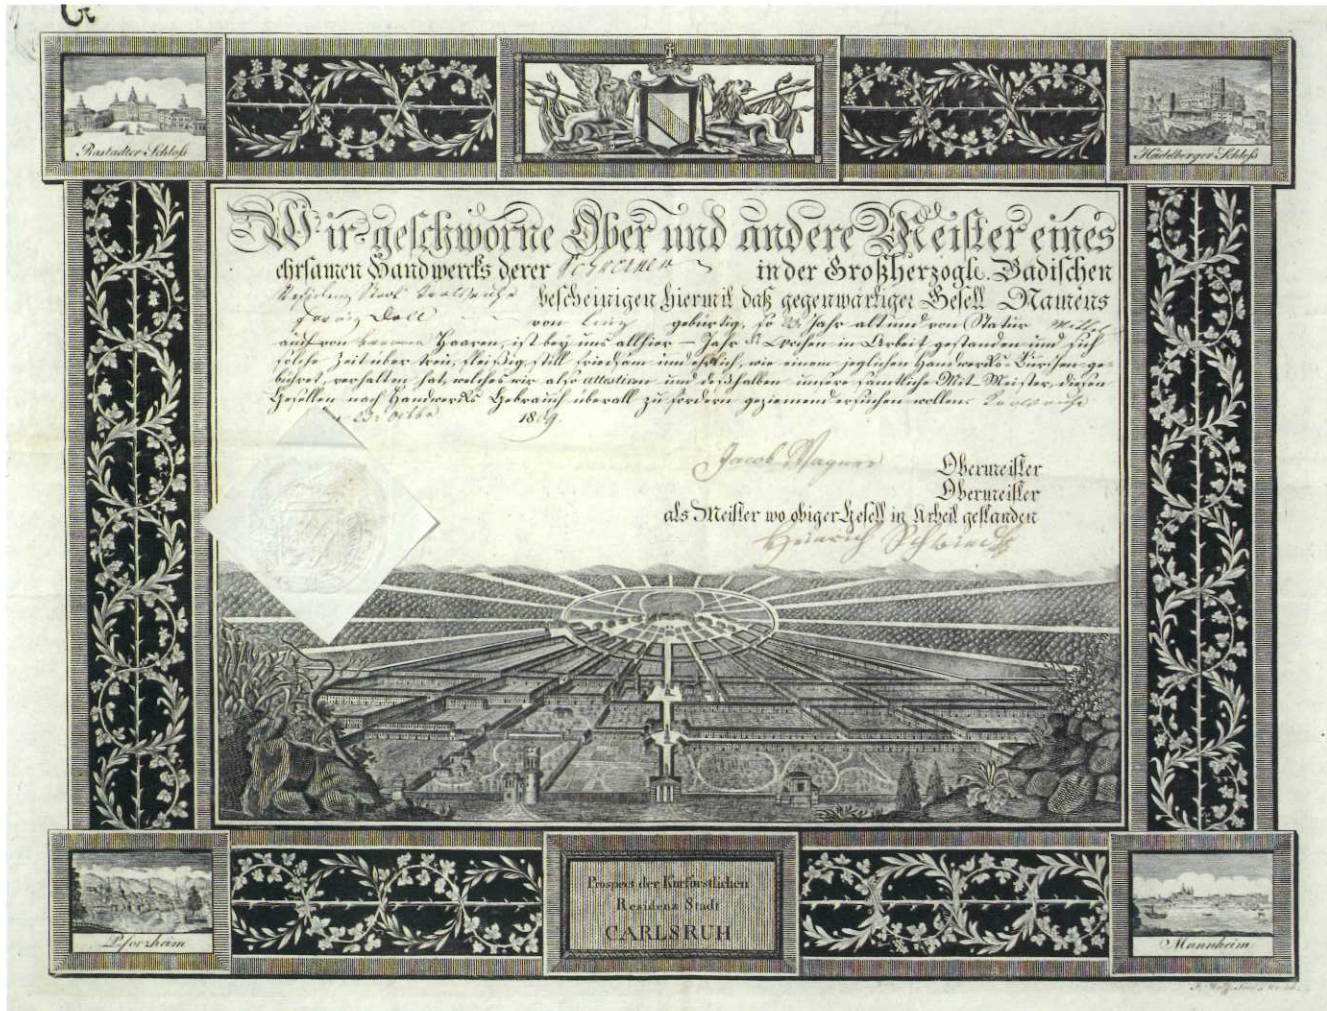 Rastadter Schloß
Heidelberger Schloß
Wir geschworne Ober und andere Meister eines
ehrsamen Handwercks derer Schreiner in der Großherzogl. Badischen
Residenz Stadt Carlsruhe bescheinigen hiermit daß gegenwärtiger Gesell Namens
von gebürtig, so 23 Jahr alt und von Statur Mittel
auch von Haaren, ist bey uns allhier — Jahr Wochen in Arbeit gestanden und sich
solche Zeit über treu, fleißig, still friedsam und ehrlich, wie einem jeglichen Handwercks-Burschen ge-
bühret, verhalten hat, welches wir also attestiren und deßhalben unsere sämtliche Mit-Meister, diesen
Gesellen nach Handwercks Gebrauch überall zu fördern geziemend ersuchen wollen. Carlsruhe
1809.
Jacob Wagner Obermeister
Obermeister
als Meister wo obiger Gesell in Arbeit gestanden
Heinrich
Pforzheim
Prospect der Kurfürstlichen
Residenz Stadt
CARLSRUH
Mannheim